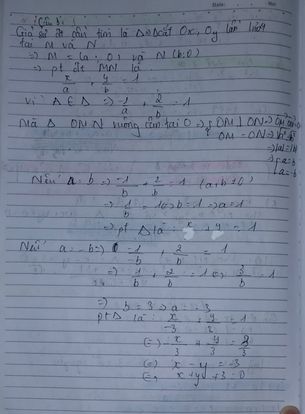 Giả sử đt cần tìm là Δ Δ cắt Ox, Oy lần lượt
tại M và N
=> M = (a; 0) và N (b; 0)
=> pt đt MN là
x/a + y/b = 1
vì A ∈ Δ => -1/a + 2/b = 1
Mà Δ OMN vuông cân tại O => { OM ⊥ ON =>
OM = ON =>
a = b
a = -b
Nếu a = b => -1/b + 2/b = 1 (a, b ≠ 0)
1/b = 1 => b = 1 => a = 1
=> pt Δ là: x + y = 1
Nếu a = -b => -1/-b + 2/b = 1
=> 1/b + 2/b = 1 <=> 3/b = 1
=> b = 3 => a = -3
pt Δ là: x/-3 + y/3 = 1
(=) -x/3 + y/3 = 3/3
(=) x - y = -3
(=) x + y + 3 = 0